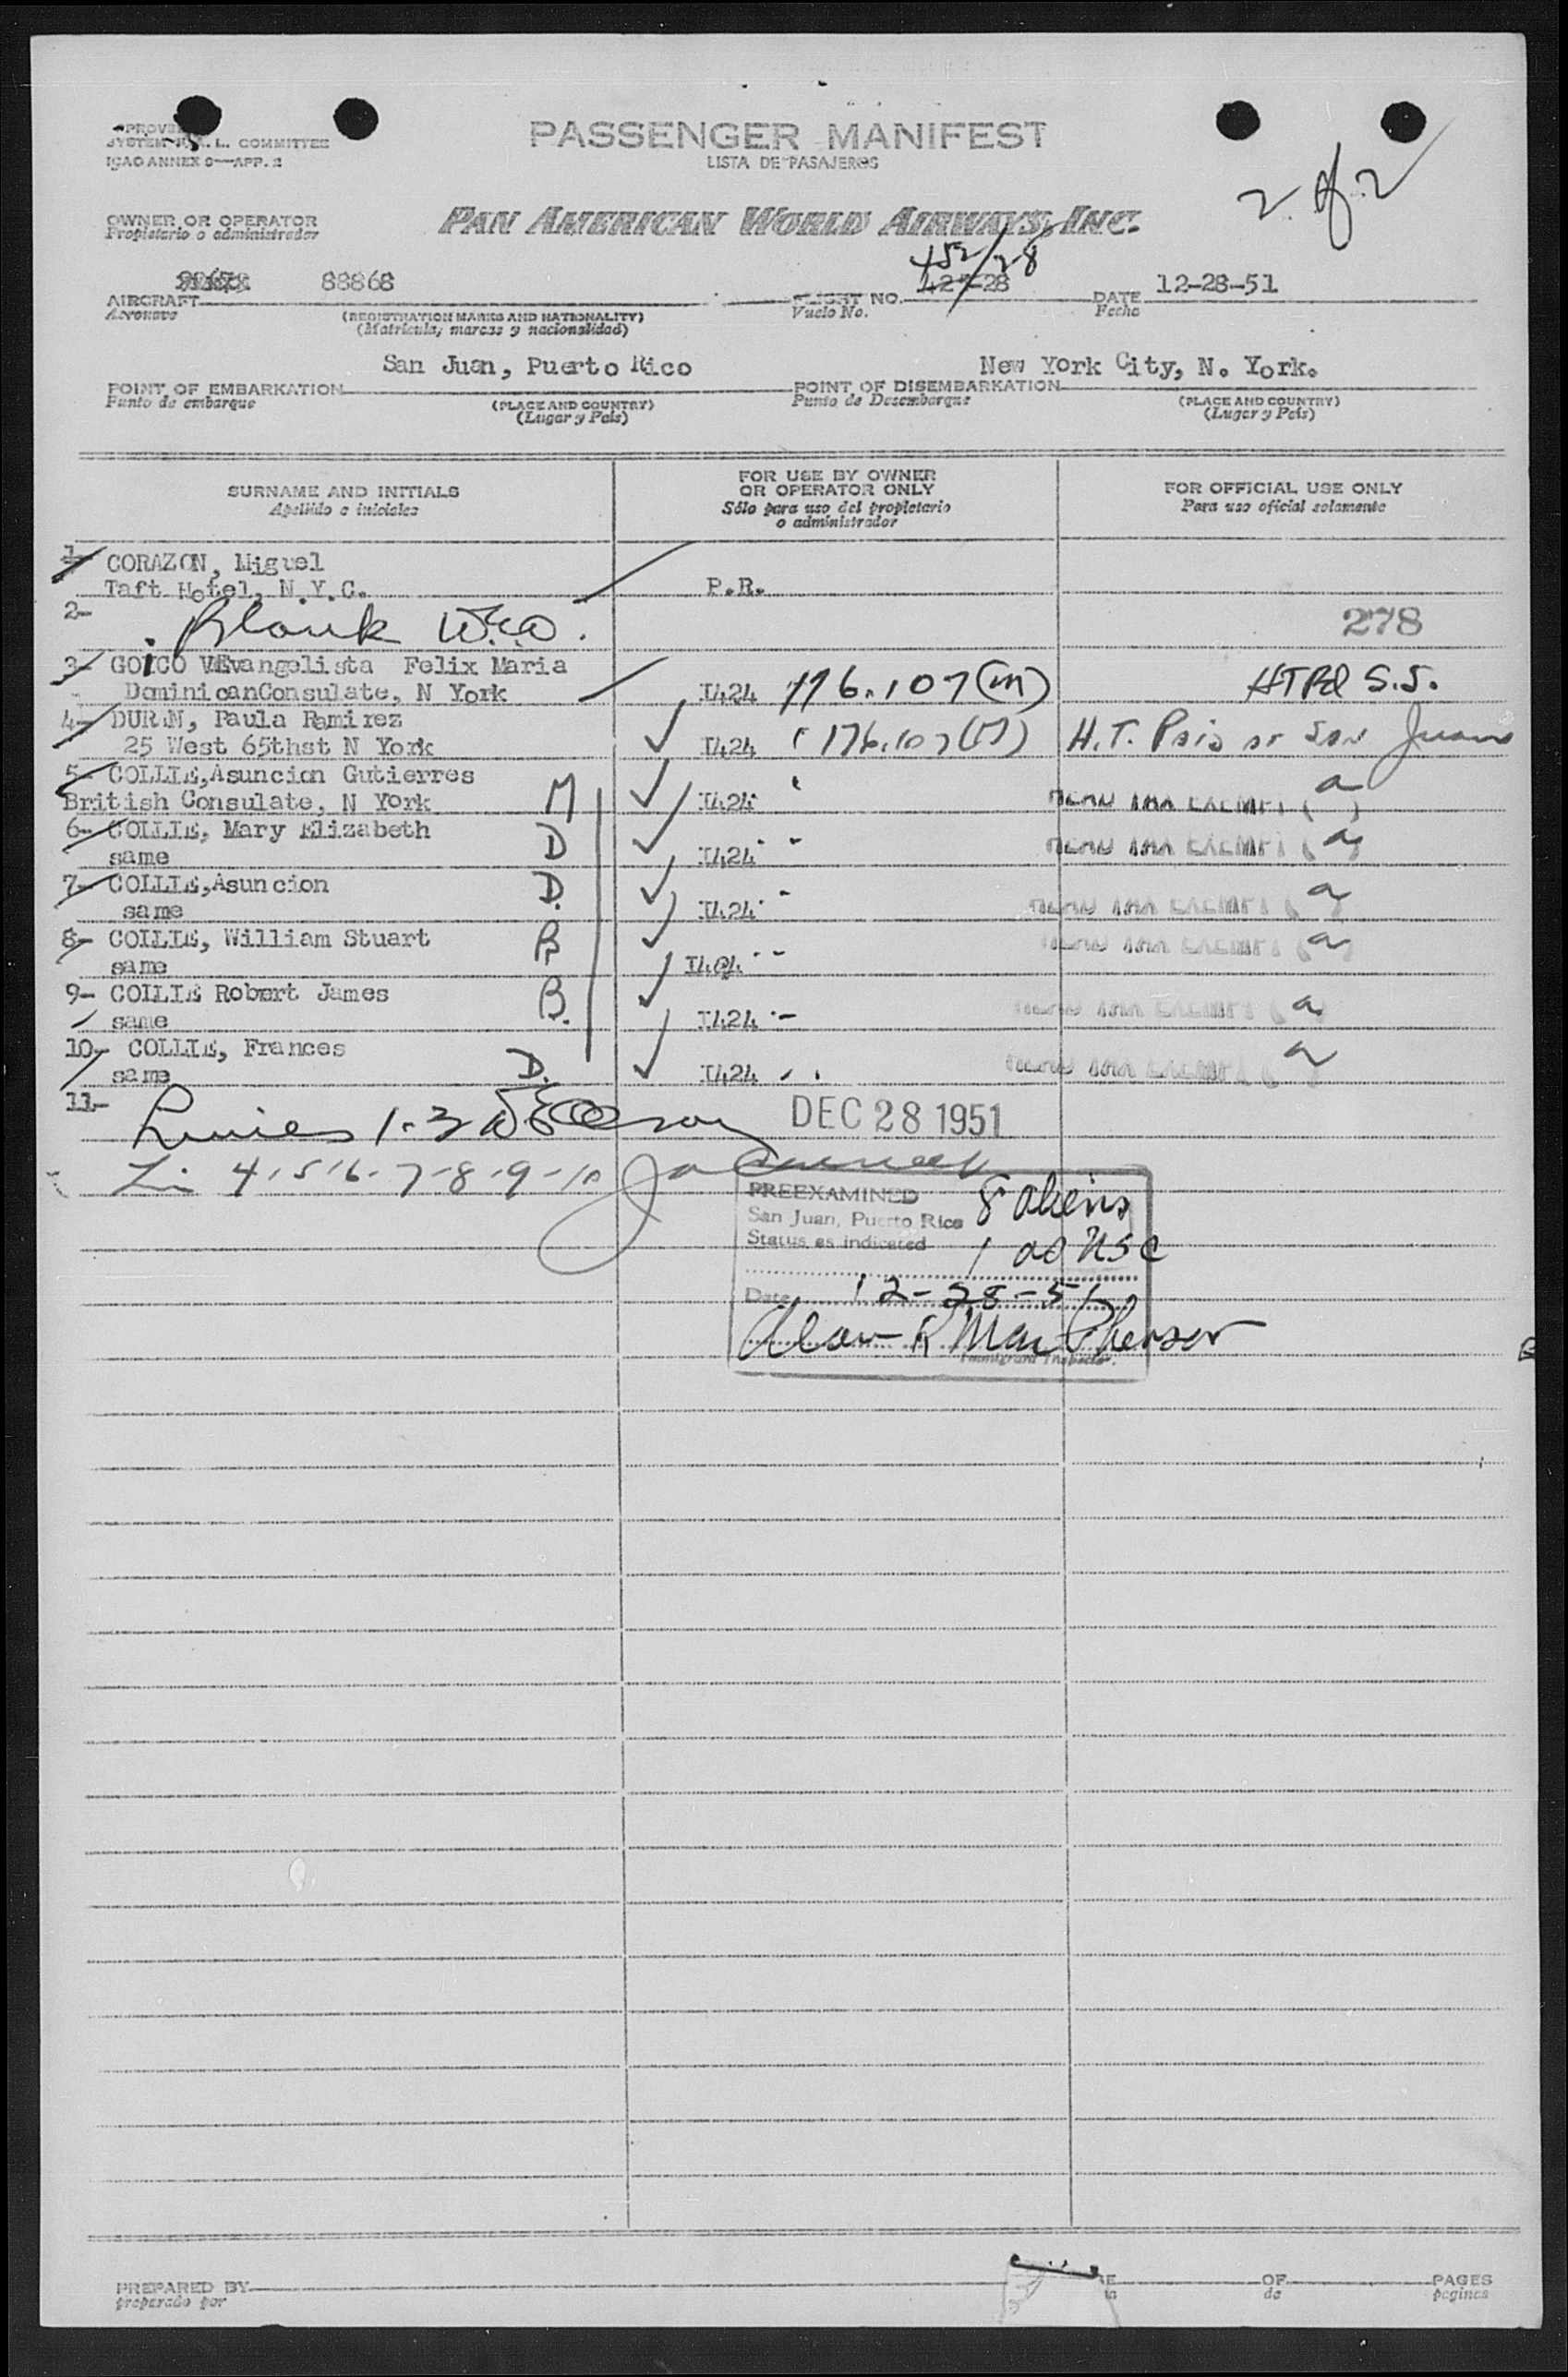 PASSENGER MANIFEST
LISTA DE PASAJEROS
COMMITTEE
ICAO ANNEX 9—APP. 2
2 of 2
OWNER OR OPERATOR
Propietario o administrador
PAN AMERICAN WORLD AIRWAYS, INC.
452/28
88868
428-28
12-28-51
AIRCRAFT
Aeronave
(REGISTRATION MARKS AND NATIONALITY)
(Matricula, marcas y nacionalidad)
FLIGHT NO.
Vuelo No.
DATE
Fecha
San Juan, Puerto Rico
New York City, N. York.
POINT OF EMBARKATION
Punto de embarque
(PLACE AND COUNTRY)
(Lugar y País)
POINT OF DISEMBARKATION
Punto de Desembarque
(PLACE AND COUNTRY)
(Lugar y País)
SURNAME AND INITIALS
Apellido e iniciales
FOR USE BY OWNER
OR OPERATOR ONLY
Sólo para uso del propietario
o administrador
FOR OFFICIAL USE ONLY
Para uso oficial solamente
1- CORAZON, Miguel
Taft Hotel, N.Y.C. P.R.
2- Blank 278
3- GOICO Evangelista Felix Maria
DominicanConsulate, N York I424 176.107(M) HTPd S.J.
4- DURAN, Paula Ramirez
25 West 65thst N York I424 176.107(M) H.T. Paid at San Juan
5- COLLIE,Asuncion Gutierres
British Consulate, N York M I424 HEAD TAX EXEMPT (a)
6- COLLIE, Mary Elizabeth
same D I424 HEAD TAX EXEMPT (a)
7- COLLIE,Asuncion
same D. I424 HEAD TAX EXEMPT (a)
8- COLLIE, William Stuart
same B I424 HEAD TAX EXEMPT (a)
9- COLLIE Robert James
same B. I424 HEAD TAX EXEMPT (a)
10- COLLIE, Frances
same D. I424 HEAD TAX EXEMPT (a)
11-
Lines 1-3
DEC 28 1951
Li 4-5-6-7-8-9-10
PREEXAMINED
San Juan, Puerto Rico
8 aliens
Status as indicated
1 as USC
Date 12-28-51
Alan R MacPherson
Immigrant Inspector.
PREPARED BY
preparado por
OF
de
PAGES
paginas